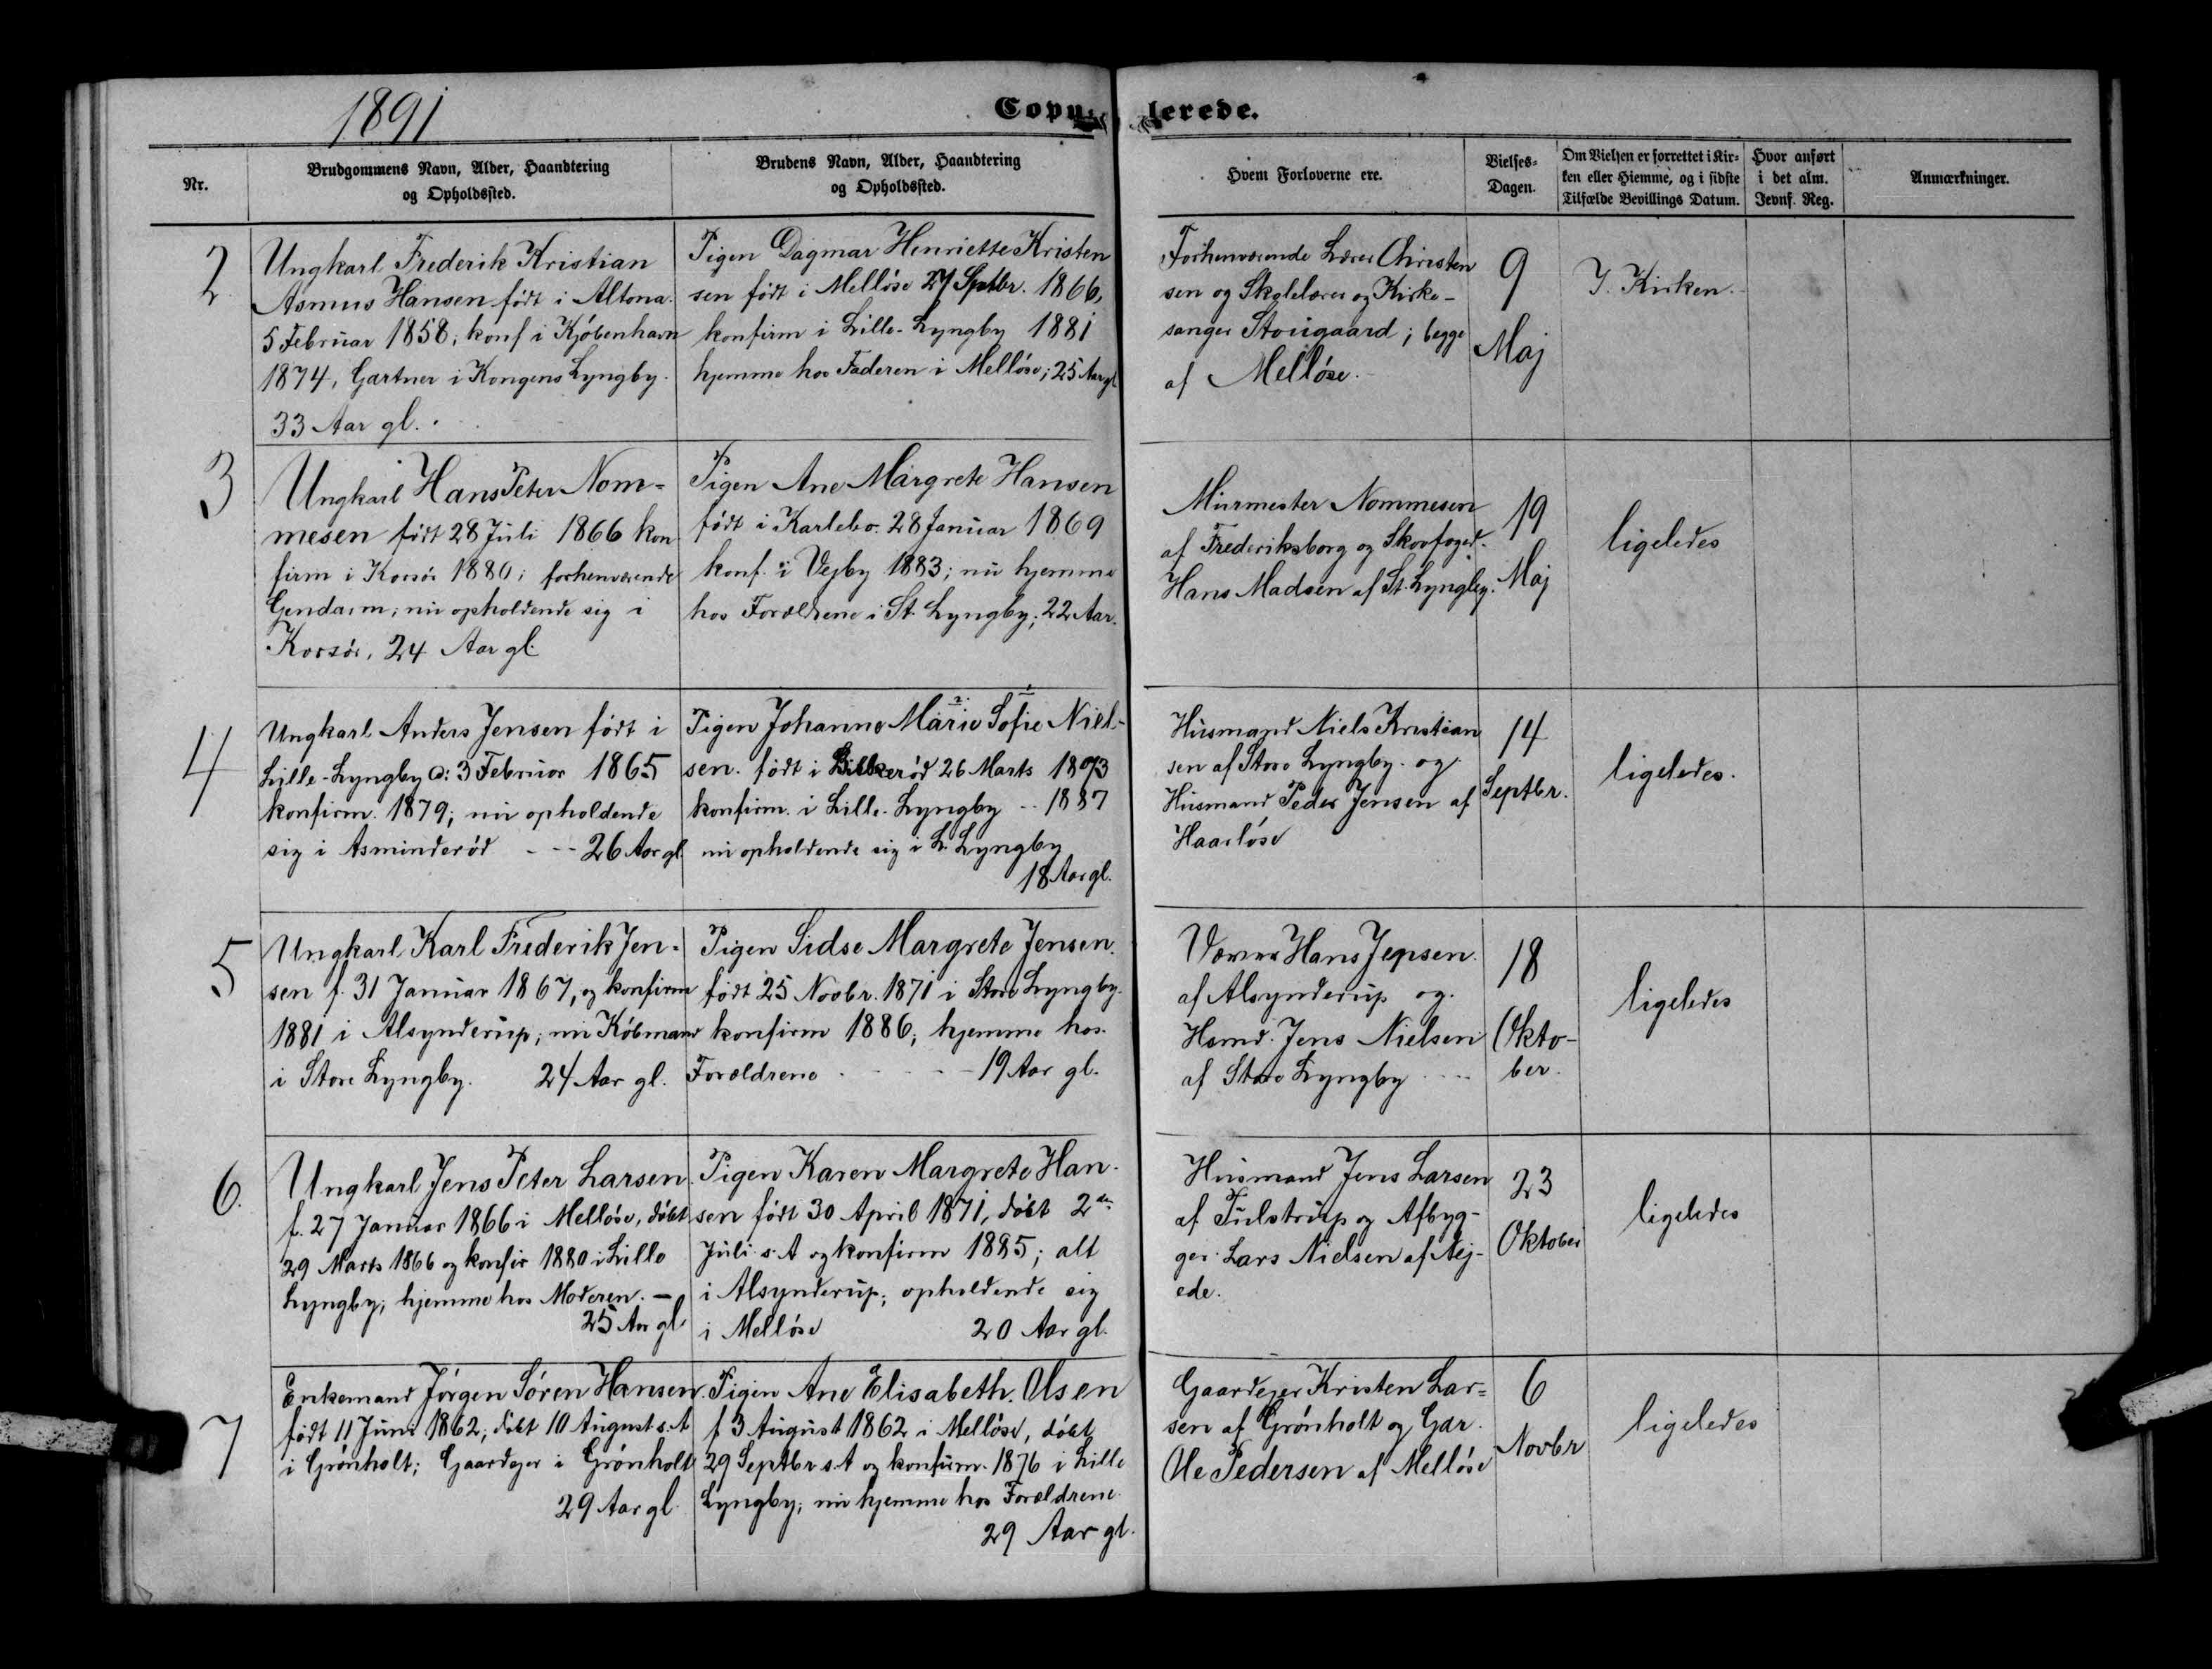 1891
Copulerede.
Nr.
Brudgommens Navn, Alder, Haandtering
og Opholdssted.
Brudens Navn, Alder, Haandtering
og Opholdssted.
Hvem Forloverne ere.
Vielses-
Dagen.
Om Vielsen er forrettet i Kir-
ken eller Hiemme, og i sidste
Tilfælde Bevillings Datum.
Hvor anført
i det alm.
Jevnf. Reg.
Anmærkninger.
2
Ungkarl Frederik Kristian
Asmus Hansen født i Altona.
5 Februar 1858; konf i Kjøbenhavn
1874, Gartner i Kongens Lyngby.
33 Aar gl.
Pigen Dagmar Henriette Kristen
sen født i Melløse 27 Sptbr. 1866,
konfirm i Lille-Lyngby 1881
hjemme hos Faderen i Melløse; 25 Aar gl
Forhenværende Lærer Christen
sen og Skolelærer og Kirke-
sanger Stougaard; begge
af Melløse.
9
Maj
I. Kirken.
3
Ungkarl Hans Peter Nom-
mesen født 28 Juli 1866 kon
firm i Korsør 1880; forhenværende
Gendarm; nu opholdende sig i
Korsør, 24 Aar gl.
Pigen Ane Margrete Hansen
født i Karlebo. 28 Januar 1869
konf. i Vejby 1883; nu hjemme
hos Forældrene i St. Lyngby; 22 Aar.
Murmester Nommesen
af Frederiksborg og Skovfoged.
Hans Madsen af St. Lyngby.
19
Maj
ligeledes
4
Ungkarl Anders Jensen født i
Lille-Lyngby 3 Februar 1865
konfirm. 1879; nu opholdende
sig i Asminderød - - - 26 Aar gl.
Pigen Johanne Marie Sofie Niel-
sen. født i 26 Marts 1873
konfirm. i Lille-Lyngby - - 1887
nu opholdende sig i L. Lyngby
18 Aar gl.
Husmand Niels Kristian
sen af Store Lyngby. og
Husmand Peder Jensen af
Haarløse
14
Septbr.
ligeledes.
5
Ungkarl Karl Frederik Jen-
sen f. 31 Januar 1867, og konfirm
1881 i Alsynderup; nu Købmand
i Store Lyngby. 24 Aar gl.
Pigen Sidse Margrete Jensen.
født 25 Novbr. 1871 i Store Lyngby.
konfirm 1886; hjemme hos.
Forældrene - - - - 19 Aar gl.
Hans Jepsen.
af Alsynderup og.
Hsmd. Jens Nielsen
af Store Lyngby
18
Okto-
ber.
ligeledes
6.
Ungkarl Jens Peter Larsen
f. 27 Januar 1866 i Melløse, døbt
29 Marts 1866 og konfir 1880 i Lille
Lyngby; hjemme hos Moderen. -
25 Aar gl
Pigen Karen Margrete Han-
sen født 30 April 1871, døbt 2den
Juli s. A og konfirm 1885; alt
i Alsynderup; opholdende sig
i Melløse 20 Aar gl.
Husmand Jens Larsen
af Tulstrup og Afbyg-
ger Lars Nielsen af Nej-
ede.
23
Oktober
ligeledes
7
Enkemand Jørgen Søren Hansen.
født 11 Juni 1862; døbt 10 August s. A
i Grønholt; Gaardejer i Grønholt
29 Aar gl.
Pigen Ane Elisabeth. Olsen
f 3 August 1862 i Melløse, døbt
29 Septbr s. A og konfirm. 1876 i Lille
Lyngby; nu hjemme hos Forældrene.
29 Aar gl.
Gaardejer Kristen Lar-
sen af Grønholt og Gdr.
Ole Pedersen af Melløse
6
Novbr
ligeledes